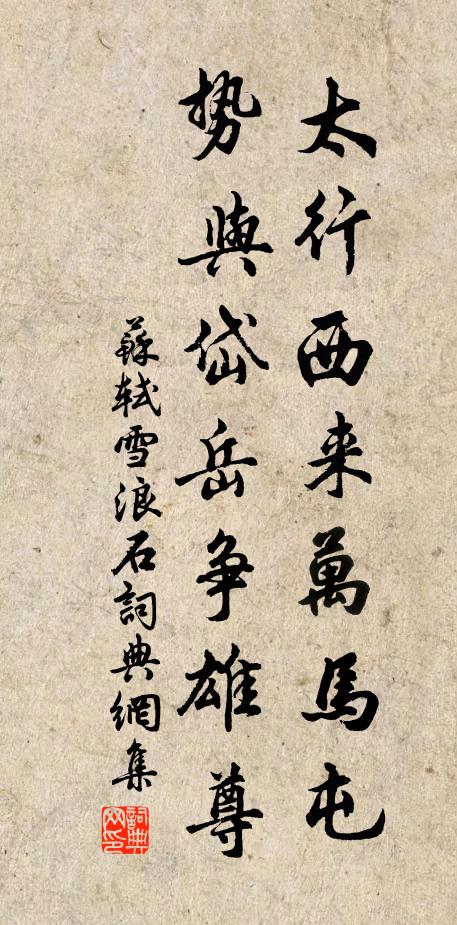 太行西来萬馬屯
势與岱岳争雄尊
蘇軾雪浪石詞典網集
詞典网印